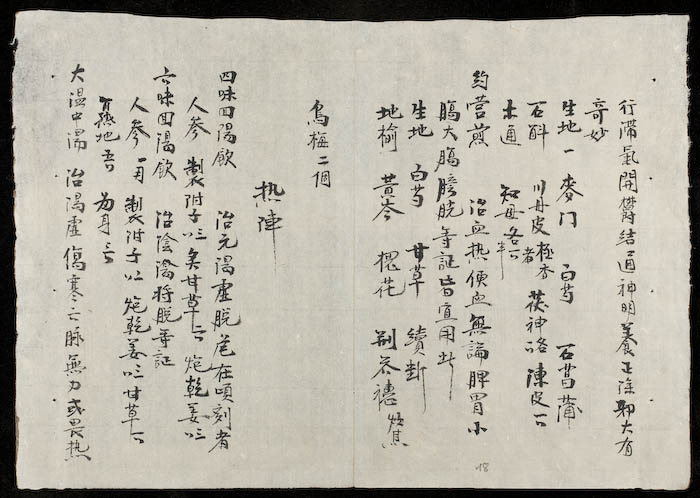 行滯氣開欝結通神明養正除邪大有
奇妙
生地一 麥門 白芍 石菖蒲
石斛 川丹皮極香者 茯神 陳皮
木通 知母各
約营煎 治血热便血無論脾胃小
膓大膓膀胱等証皆宜用此
生地 白芍 甘草 續斷
地榆 黄芩 槐花 荆芥穗炒焦
烏梅二個
热陣
四味回陽飲 治元陽虚脱危在頃刻者
人參 製附子 炙甘草 炮乾姜
六味回陽飲 治陰陽将脱等証
人參 製附子 炮乾姜 甘草
熟地 當身
大温中湯 治陽虚傷寒 脉無力或畏热
18